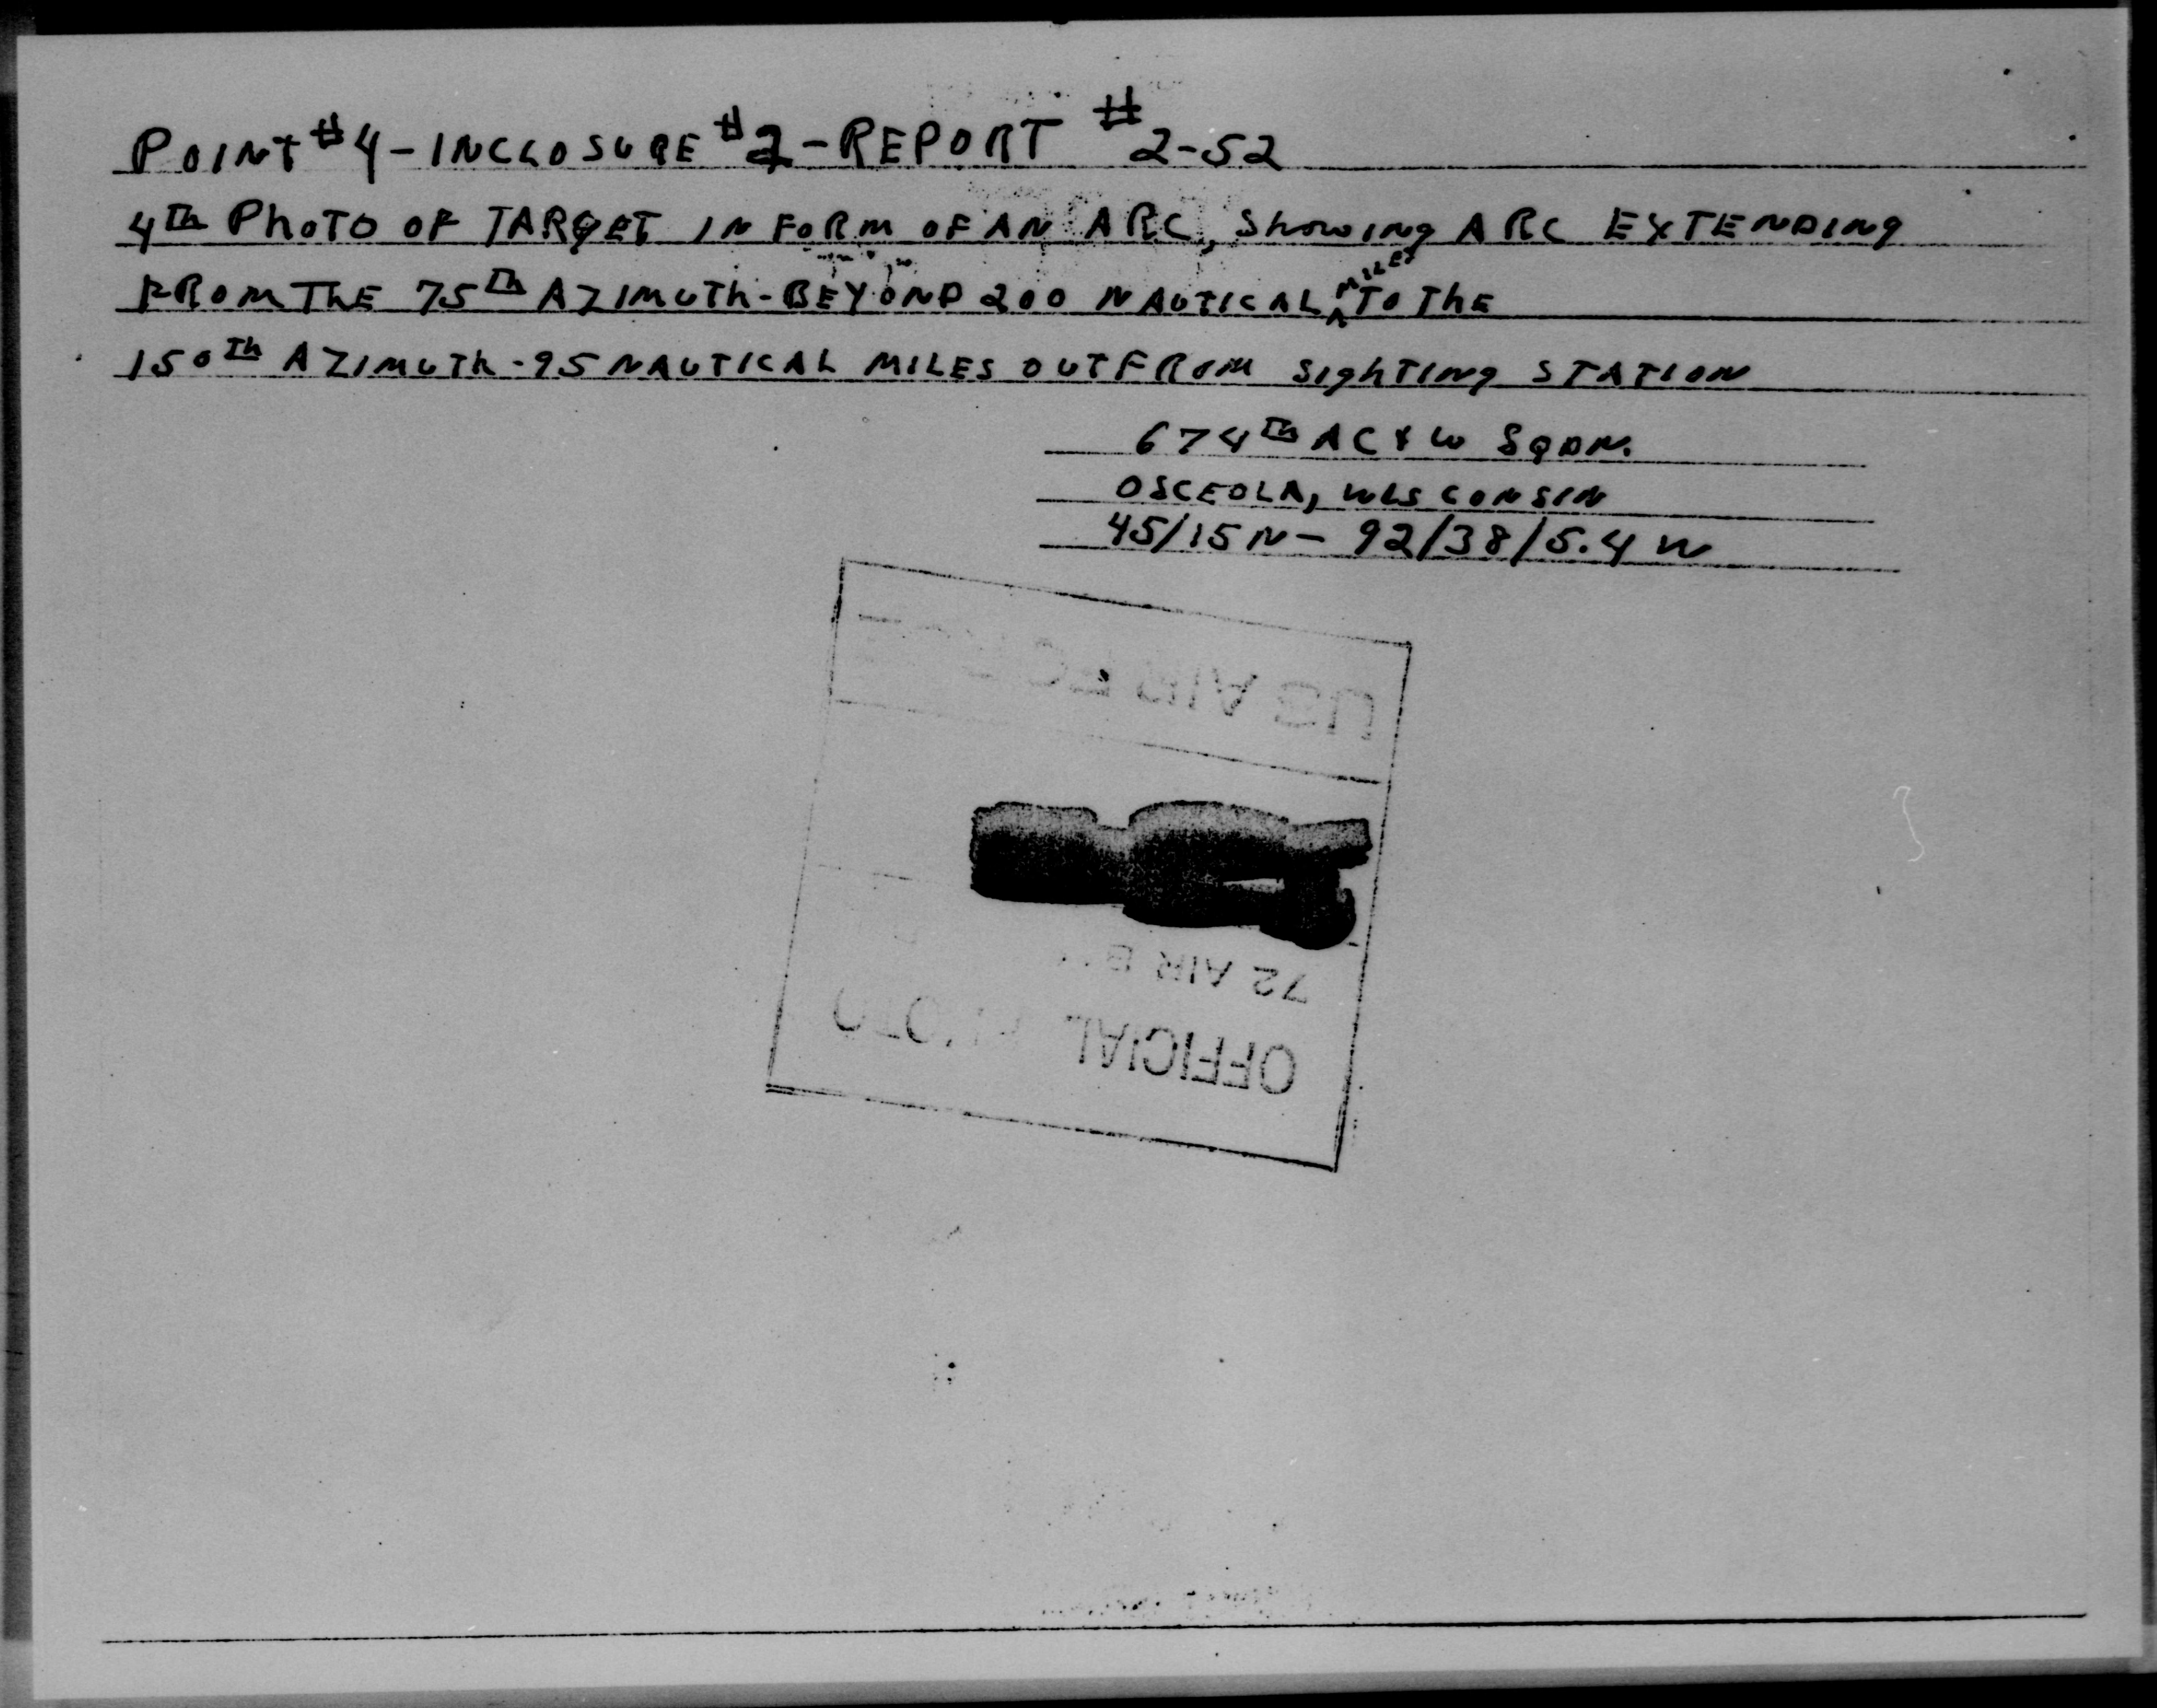 POINT #4 - INCLOSURE #2 - REPORT #2-52
4Th PhOTO OF TARGET IN FORM OF AN ARC, ShOWING ARC EXTENDING
FROM ThE 75Th AZIMUTh - BEYOND 200 NAUTICAL MILES TO ThE
150Th AZIMUTh - 95 NAUTICAL MILES OUT FROM SIGhTING STATION
674Th AC & W SQDN.
OSCEOLA, WISCONSIN
45/15 N - 92/38/5.4 W
OFFICIAL PHOTO
72 AIR
US AIR FORCE